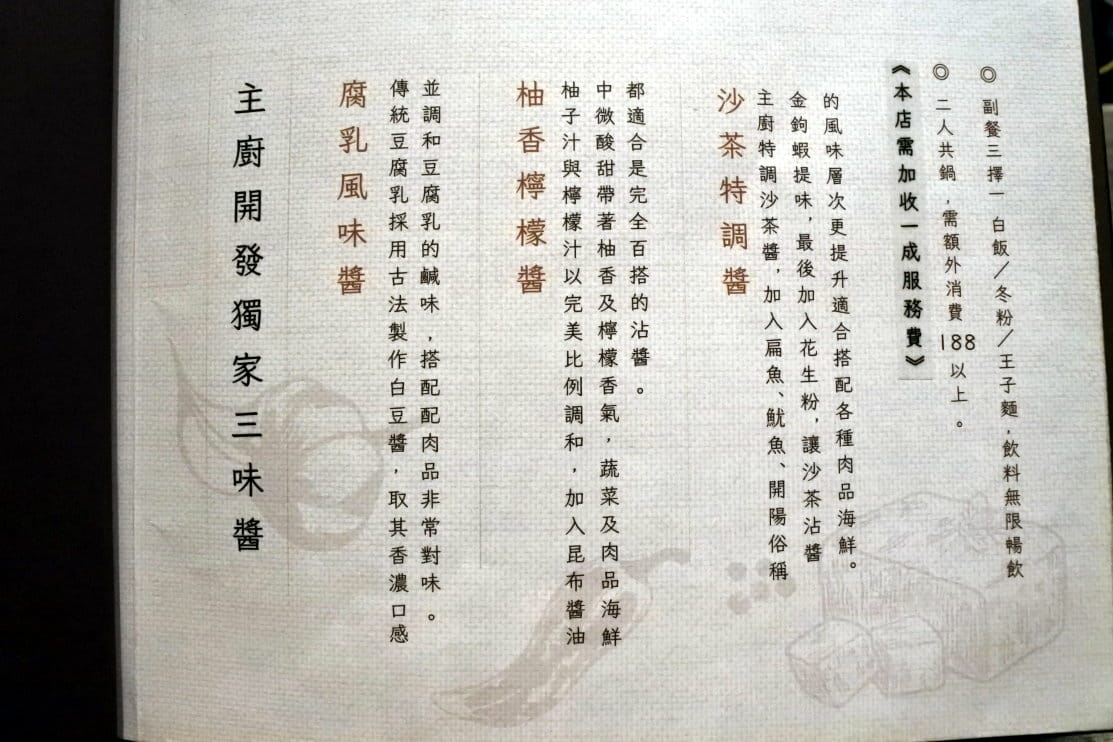 主廚開發獨家三味醬
腐乳風味醬
傳統豆腐乳採用古法製作白豆醬，取其香濃口感
並調和豆腐乳的鹹味，搭配配肉品非常對味。
柚香檸檬醬
柚子汁與檸檬汁以完美比例調和，加入昆布醬油
中微酸甜帶著柚香及檸檬香氣，蔬菜及肉品海鮮
都適合是完全百搭的沾醬。
沙茶特調醬
主廚特調沙茶醬，加入扁魚、魷魚、開陽俗稱
金鉤蝦提味，最後加入花生粉，讓沙茶沾醬
的風味層次更提升適合搭配各種肉品海鮮。
《本店需加收一成服務費》
◎ 二人共鍋，需額外消費188以上。
◎ 副餐三擇一 白飯／冬粉／王子麵，飲料無限暢飲